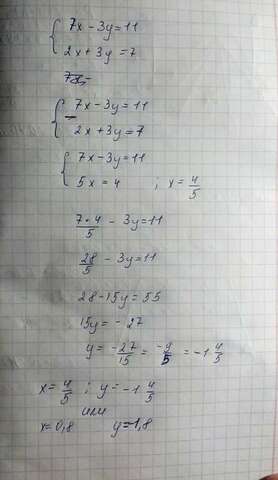 { 7x - 3y = 11
{ 2x + 3y = 7
{ 7x - 3y = 11
- { 2x + 3y = 7
{ 7x - 3y = 11
{ 5x = 4 ; x = 4/5
7·4/5 - 3y = 11
28/5 - 3y = 11
28 - 15y = 55
15y = - 27
y = -27/15 = -9/5 = -1 4/5
x = 4/5 ; y = -1 4/5
или
x = 0,8 y = -1,8